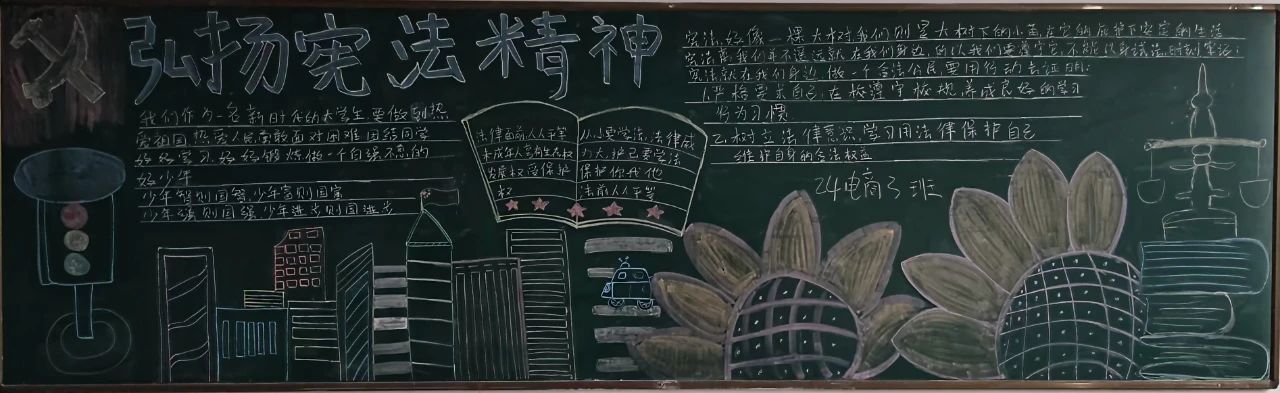 弘扬宪法精神
我们作为一名新时代的大学生要做到热
爱祖国,热爱人民勇敢面对困难团结同学
好好学习,好好锻炼做一个自强不息的
好少年
少年智则国智少年富则国富
少年强则国强少年进步则国进步
法律面前人人平等
未成年人享有生存权
发展权受保护
权
从小要学法,法律威
力大,护己要学法
保护你我他
法前人人平等
宪法,好像一棵大树我们则是大树下的小苗,在它的庇护下安定的生活
宪法离我们并不遥远就在我们身边,所以我们要遵守它,不能以身试法,时刻牢记:
宪法就在我们身边,做一个合法公民要用行动去证明:
1.严格要求自己,在校遵守校规,养成良好的学习
行为习惯
2.树立法律意识,学习用法律保护自己
维护自身的合法权益
24电商3班